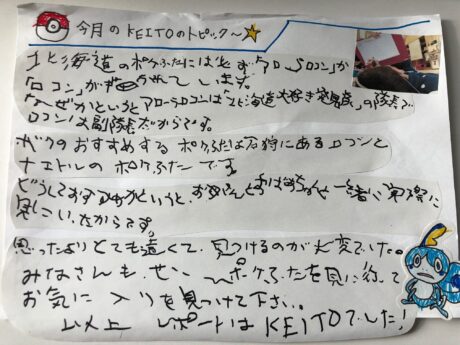 今月のKEITOのトピック〜
北海道のポケふたには必ず「アローラロコン」か
「ロコン」がえがかれています。
なぜかというとアローラロコンは「北海道大好き発見隊」の隊長で
ロコンは副隊長だからです。
ボクのおすすめするポケふたは石狩にあるロコンと
ナエトルのポケふたです。
どうしておすすめかというと、お父さんとおばあちゃんと一緒に実際に
見にいったからです。
思ったよりとても遠くて、見つけるのが大変でした。
みなさんも、ぜひ ポケふたを見に行って
お気に入りを見つけて下さい。
以上 レポートはKEITOでした!